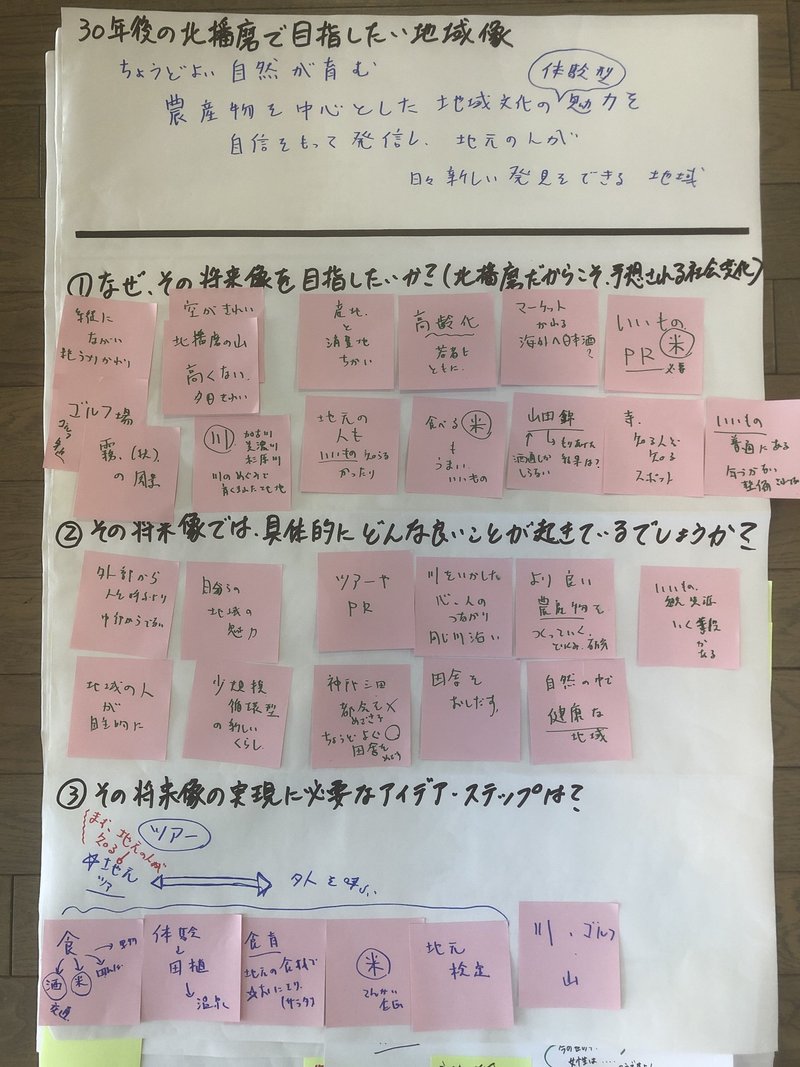 30年後の北播磨で目指したい地域像
ちょうどよい 自然が育む
体験型
農産物を中心とした 地域文化の魅力を
自信をもって発信し、地元の人が
日々新しい発見をできる 地域
①なぜ、その将来像を目指したいか?(北播磨だからこそ、予想される社会変化)
縦に
ながい
空がきれい
北播磨の山
高くない
夕日きれい
産地
と
消費地
ちかい
高齢化
若者と
ともに
マーケット
かわる
海外へ日本酒?
いいもの
PR 米
必要
ゴルフ場
霧(秋)
の風景
川
加古川
美濃川
杉原川
川のめぐみで
地元の
人も
いいもの知らな
かったり
食べる米
も
うまい
いいもの
山田錦
寺
知る人ぞ
知る
スポット
いいもの
普通にある
②その将来像では、具体的にどんな良いことが起きているでしょうか?
外部から
人を呼ぶより
自分らの
地域の
魅力
ツアーや
PR
川をいかした
心、人の
つながり
同じ川沿い
より良い
農産物を
つくっていく
いいもの
いく手段
が
ある
地域の人
が
自主的に
少規模
循環型
の新しい
くらし
神戸三田
都会を×
めざさず
ちょうどよく〇
田舎を
田舎を
おしだす。
自然の中で
健康な
地域
③その将来像の実現に必要なアイデア・ステップは?
まず、地元の人が
知る!
ツアー
☆地元
ツアー
外人を呼ぶ
食
酒 米
交通
体験と
田植
温泉
食育
地元の食材で
おにぎり
(サラダ)
米
地元
検定
川、ゴルフ
山